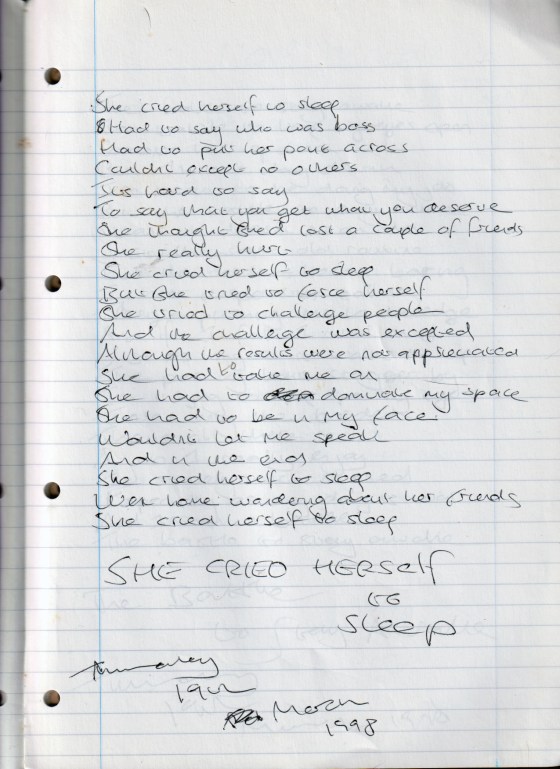 She cried herself to sleep
Had to say who was boss
Had to put her point across
Couldnt except no others
Its hard to say
To say that you get what you deserve
She thought shed lost a couple of friends
She really hurt
She cried herself to sleep
But she tried to force herself
She tried to challenge people
And the challenge was excepted
Although the results were not appreciated
She had to take me on
She had to dominate my space
She had to be in my face
Wouldnt let me speak
And in the end
She cried herself to sleep
Went home wondering about her friends
She cried herself to sleep
SHE CRIED HERSELF
to
Sleep
19th
March
1998